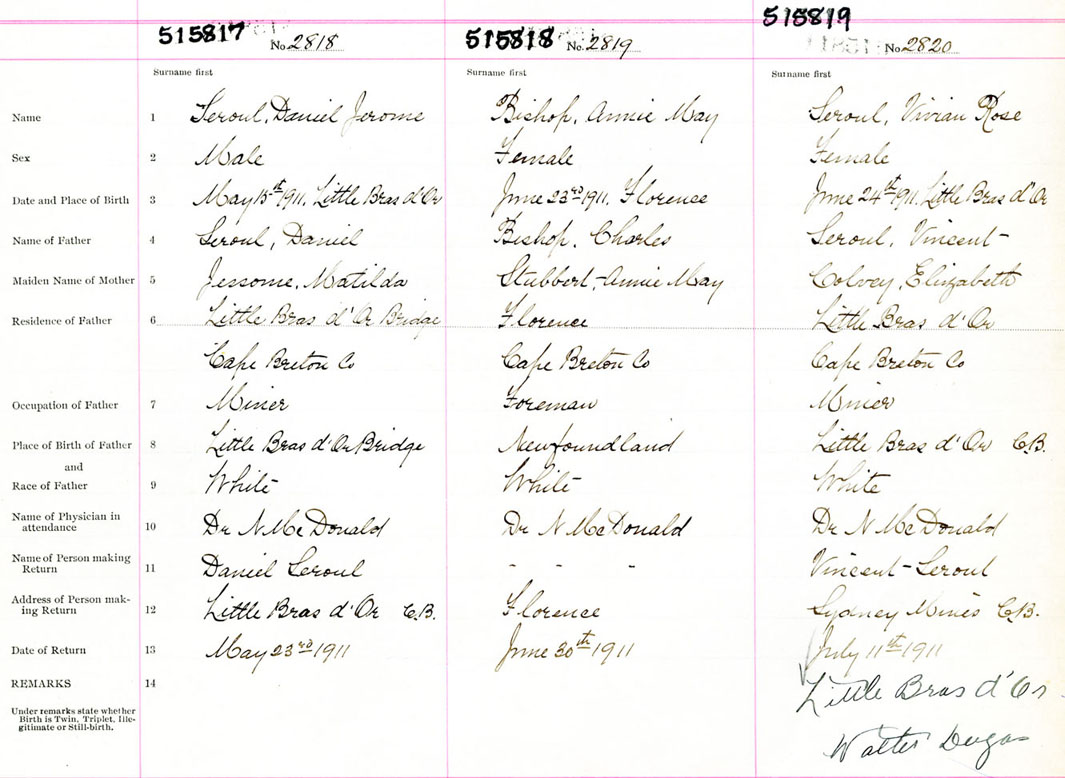 515817 No. 2818 515818 No. 2819 515819 No. 2820
Surname first Surname first Surname first
Name 1 Seroul, Daniel Jerome Bishop, Annie May Seroul, Vivian Rose
Sex 2 Male Female Female
Date and Place of Birth 3 May 15th 1911, Little Bras d'Or June 23rd 1911, Florence June 24th 1911, Little Bras d'Or
Name of Father 4 Seroul, Daniel Bishop, Charles Seroul, Vincent
Maiden Name of Mother 5 Jessome, Matilda Stubbert, Annie May Colvey, Elizabeth
Residence of Father 6 Little Bras d'Or Bridge Florence Little Bras d'Or
Cape Breton Co Cape Breton Co Cape Breton Co
Occupation of Father 7 Miner Foreman Miner
Place of Birth of Father 8 Little Bras d'Or Bridge Newfoundland Little Bras d'Or C.B.
and
Race of Father 9 White White White
Name of Physician in
attendance 10 Dr N McDonald Dr N McDonald Dr N McDonald
Name of Person making
Return 11 Daniel Seroul - - - Vincent Seroul
Address of Person mak-
ing Return 12 Little Bras d'Or C.B. Florence Sydney Mines C.B.
Date of Return 13 May 23rd 1911 June 30th 1911 July 11th 1911
REMARKS 14 Little Bras d'Or
Under remarks state whether
Birth is Twin, Triplet, Ille-
gitimate or Still-birth.
Walter Dugas